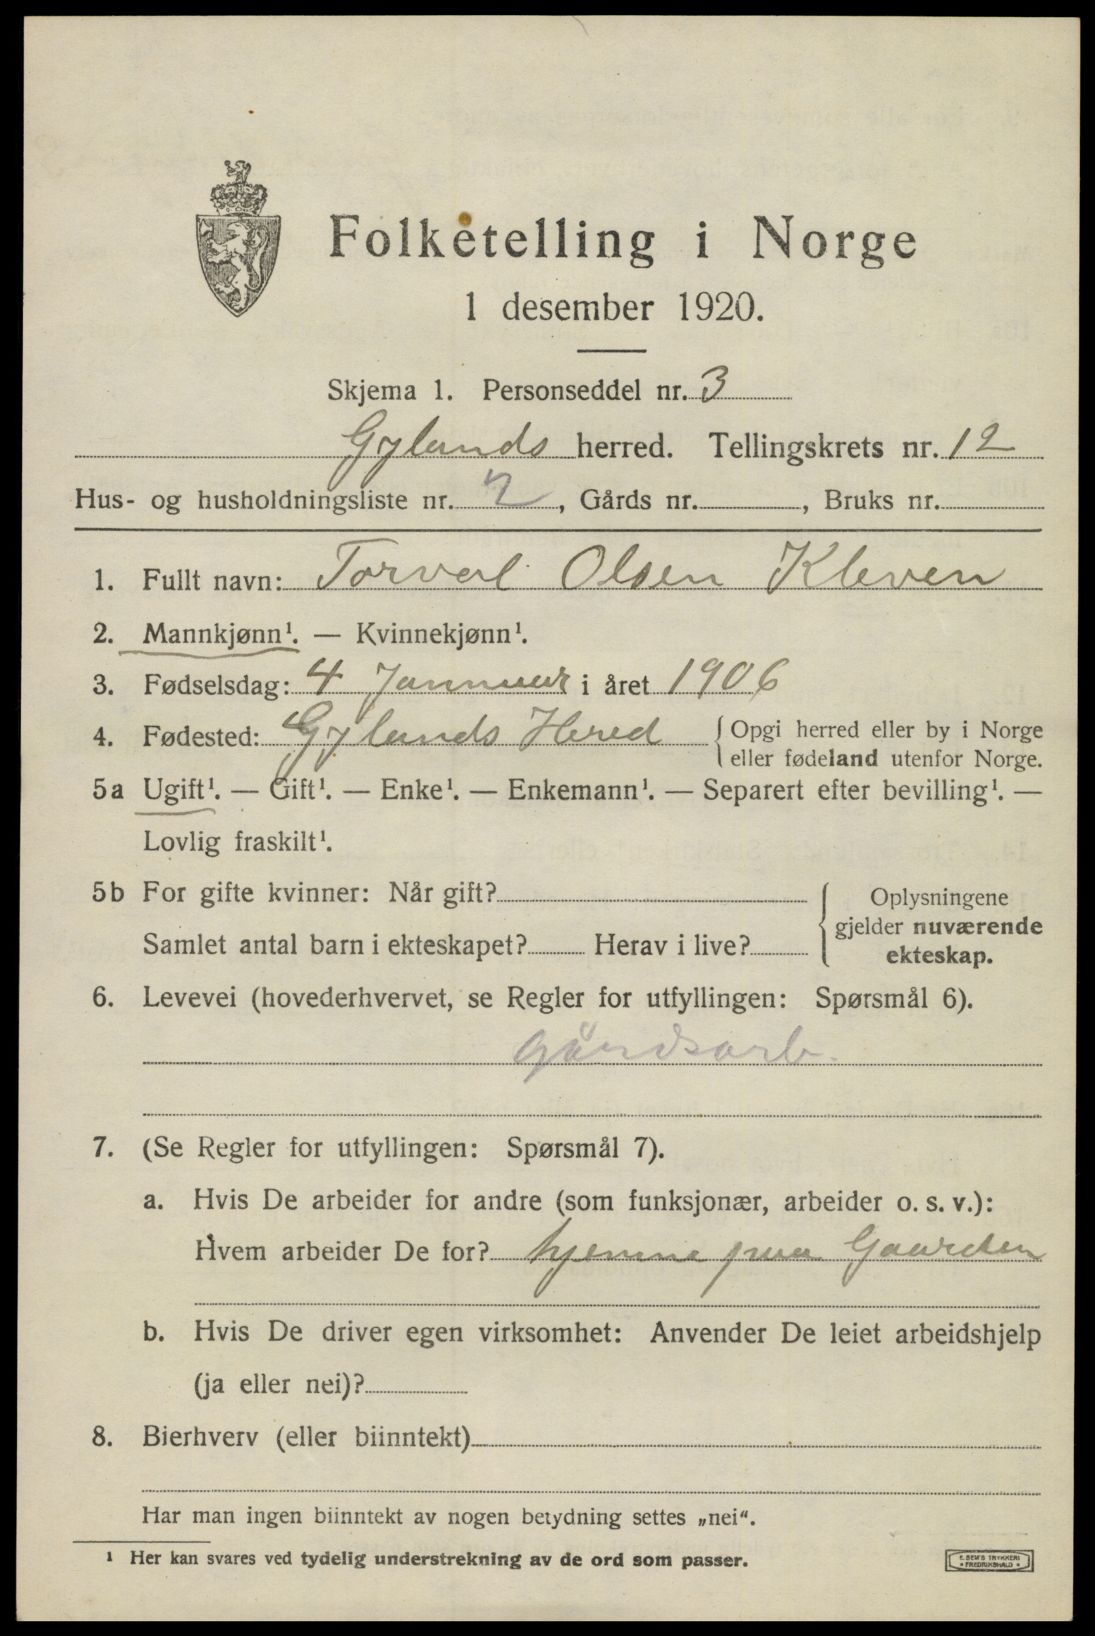 Folketelling i Norge
1 desember 1920.
Skjema 1. Personseddel nr. 3
Gylands herred. Tellingskrets nr. 12
Hus- og husholdningsliste nr. 2, Gårds nr. , Bruks nr.
1. Fullt navn: Torval Olsen Kleven
2. Mannkjønn¹. — Kvinnekjønn¹.
3. Fødselsdag: 4 Januar i året 1906
4. Fødested: Gylands Hered { Opgi herred eller by i Norge
eller fødeland utenfor Norge.
5a Ugift¹. — Gift¹. — Enke¹. — Enkemann¹. — Separert efter bevilling¹. —
Lovlig fraskilt¹.
5b For gifte kvinner: Når gift? { Oplysningene
gjelder nuværende
Samlet antal barn i ekteskapet? Herav i live?
ekteskap.
6. Levevei (hovederhvervet, se Regler for utfyllingen: Spørsmål 6).
gårdsarb.
7. (Se Regler for utfyllingen: Spørsmål 7).
a. Hvis De arbeider for andre (som funksjonær, arbeider o. s. v.):
Hvem arbeider De for? hjemme paa Gaarden
b. Hvis De driver egen virksomhet: Anvender De leiet arbeidshjelp
(ja eller nei)?
8. Bierhverv (eller biinntekt)
Har man ingen biinntekt av nogen betydning settes „nei“.
¹ Her kan svares ved tydelig understrekning av de ord som passer.
E. SEM'S TRYKKERI
* FREDRIKSHALD *